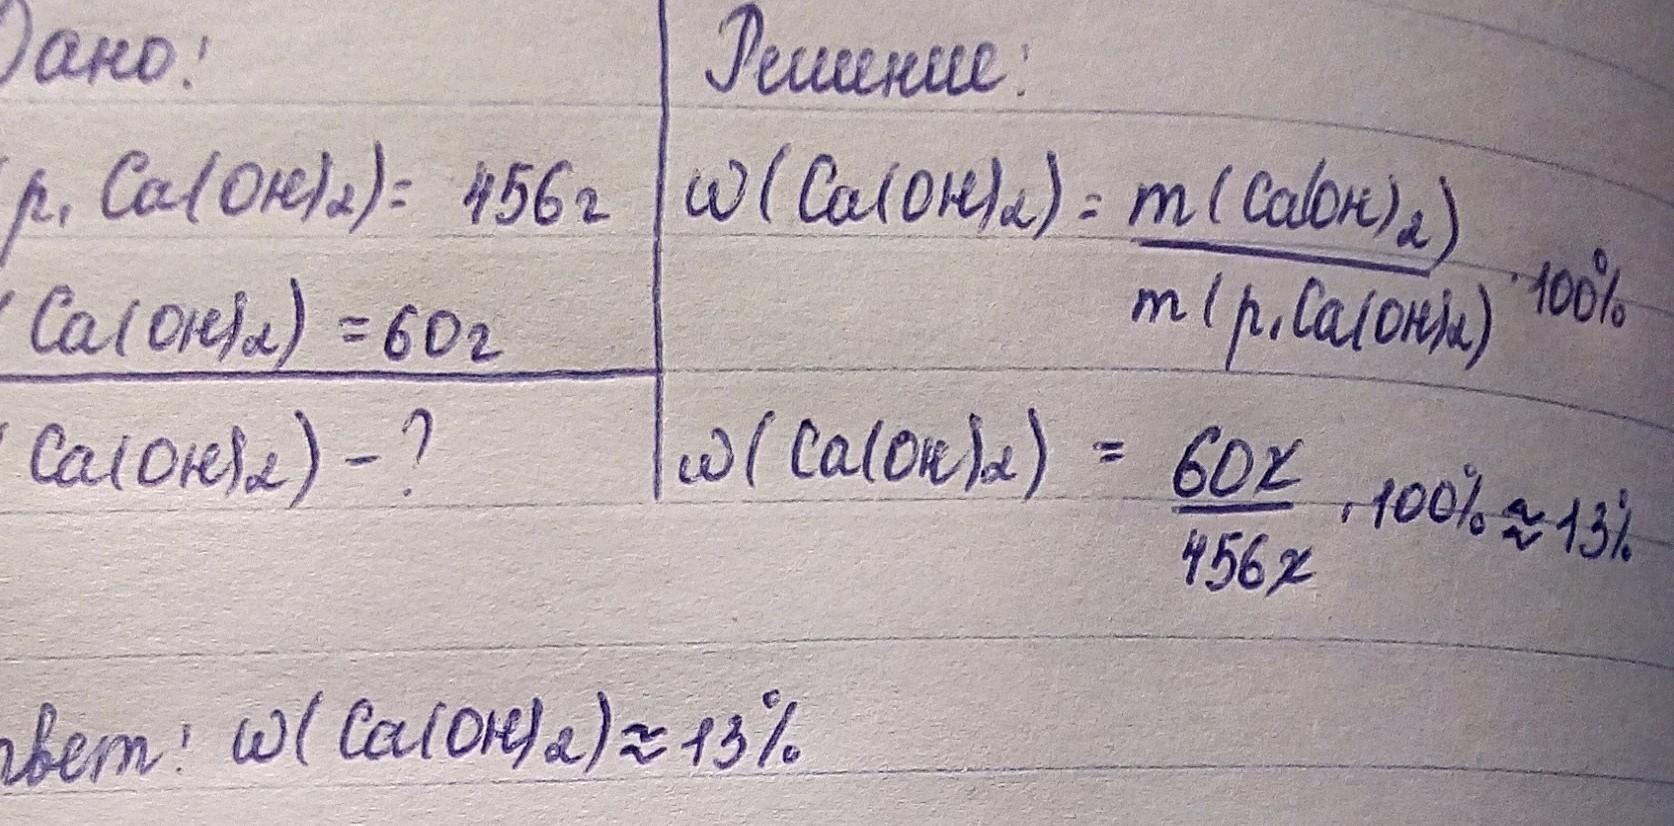 Дано:
р. Ca(OH)2) = 456г
Ca(OH)2) = 60г
Ca(OH)2) - ?
Решение:
ω(Ca(OH)2) = m(Ca(OH)2)
m(р. Ca(OH)2) · 100%
ω(Ca(OH)2) = 60г
456г · 100% ≈ 13%
твет: ω(Ca(OH)2) ≈ 13%